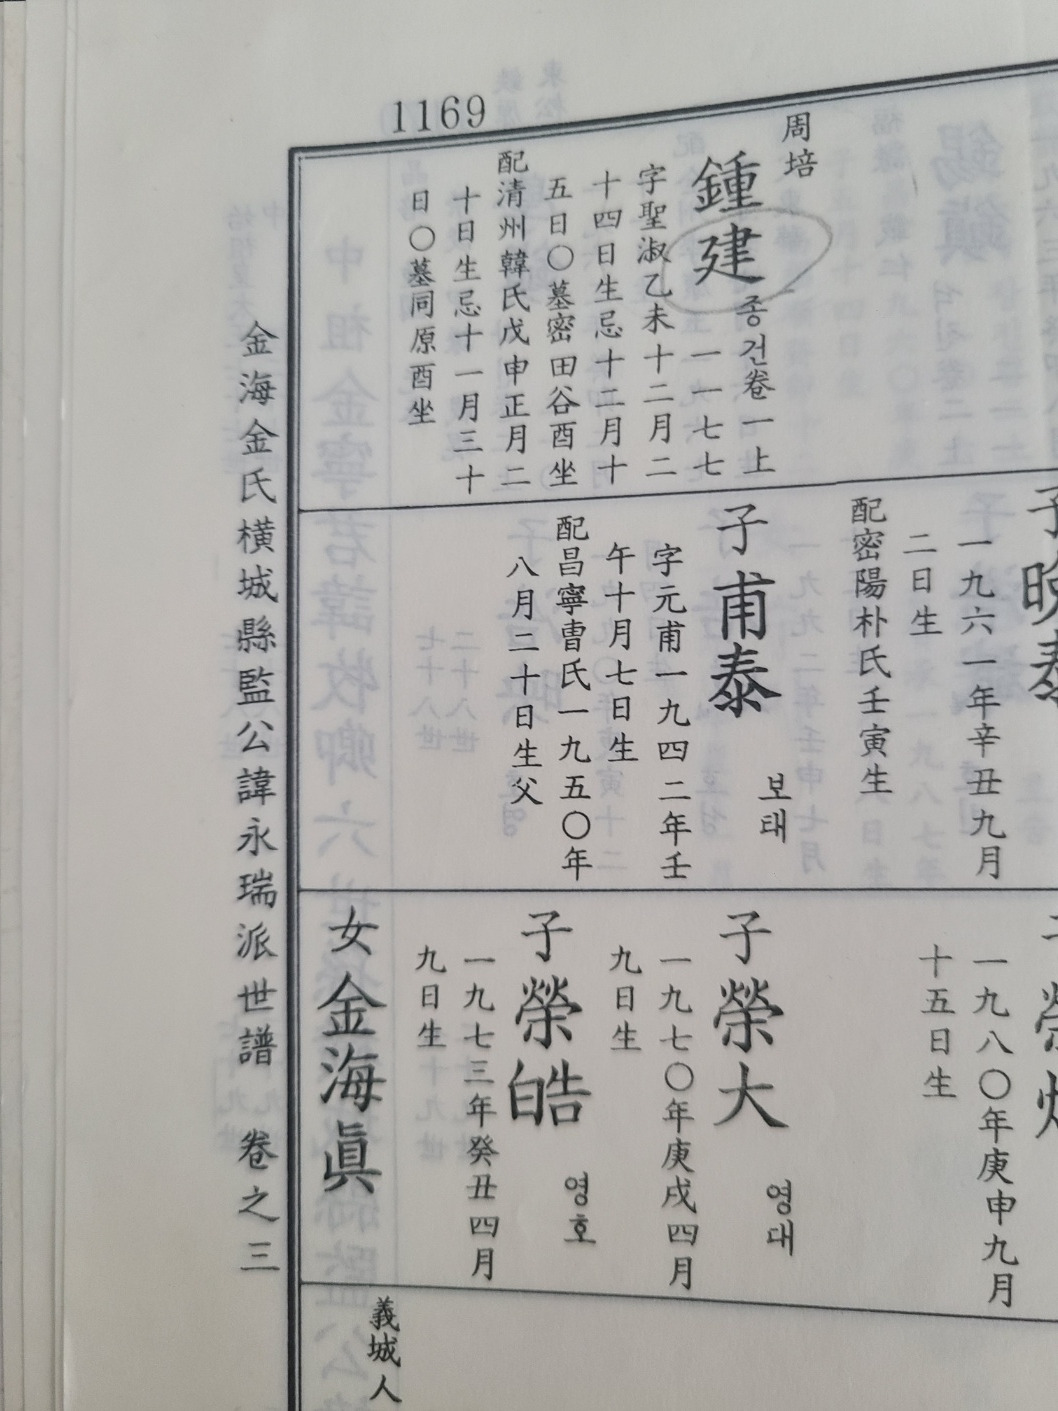 1169
周培
鍾建
종건卷一上
一一七七
字聖淑乙未十二月二
十四日生忌十二月十
五日〇墓密田谷酉坐
配清州韓氏戊申正月二
十日生忌十一月三十
日〇墓同原酉坐
一九六一年辛丑九月
二日生
配密陽朴氏壬寅生
子甫泰
보태
字元甫一九四二年壬
午十月七日生
配昌寧曺氏一九五〇年
八月二十日生父
一九八〇年庚申九月
十五日生
子榮大
영대
一九七〇年庚戌四月
九日生
子榮皓
영호
一九七三年癸丑四月
九日生
女金海眞
義城人
金海金氏橫城縣監公諱永瑞派世譜 卷之三